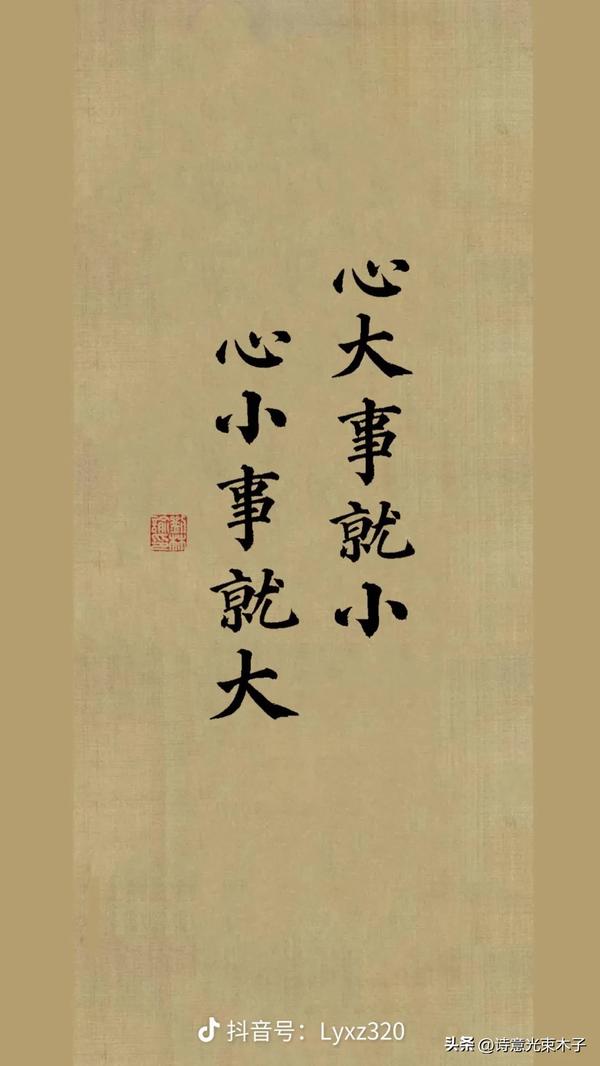 心大事就小
心小事就大
抖音号：Lyxz320
头条 @诗意光束木子